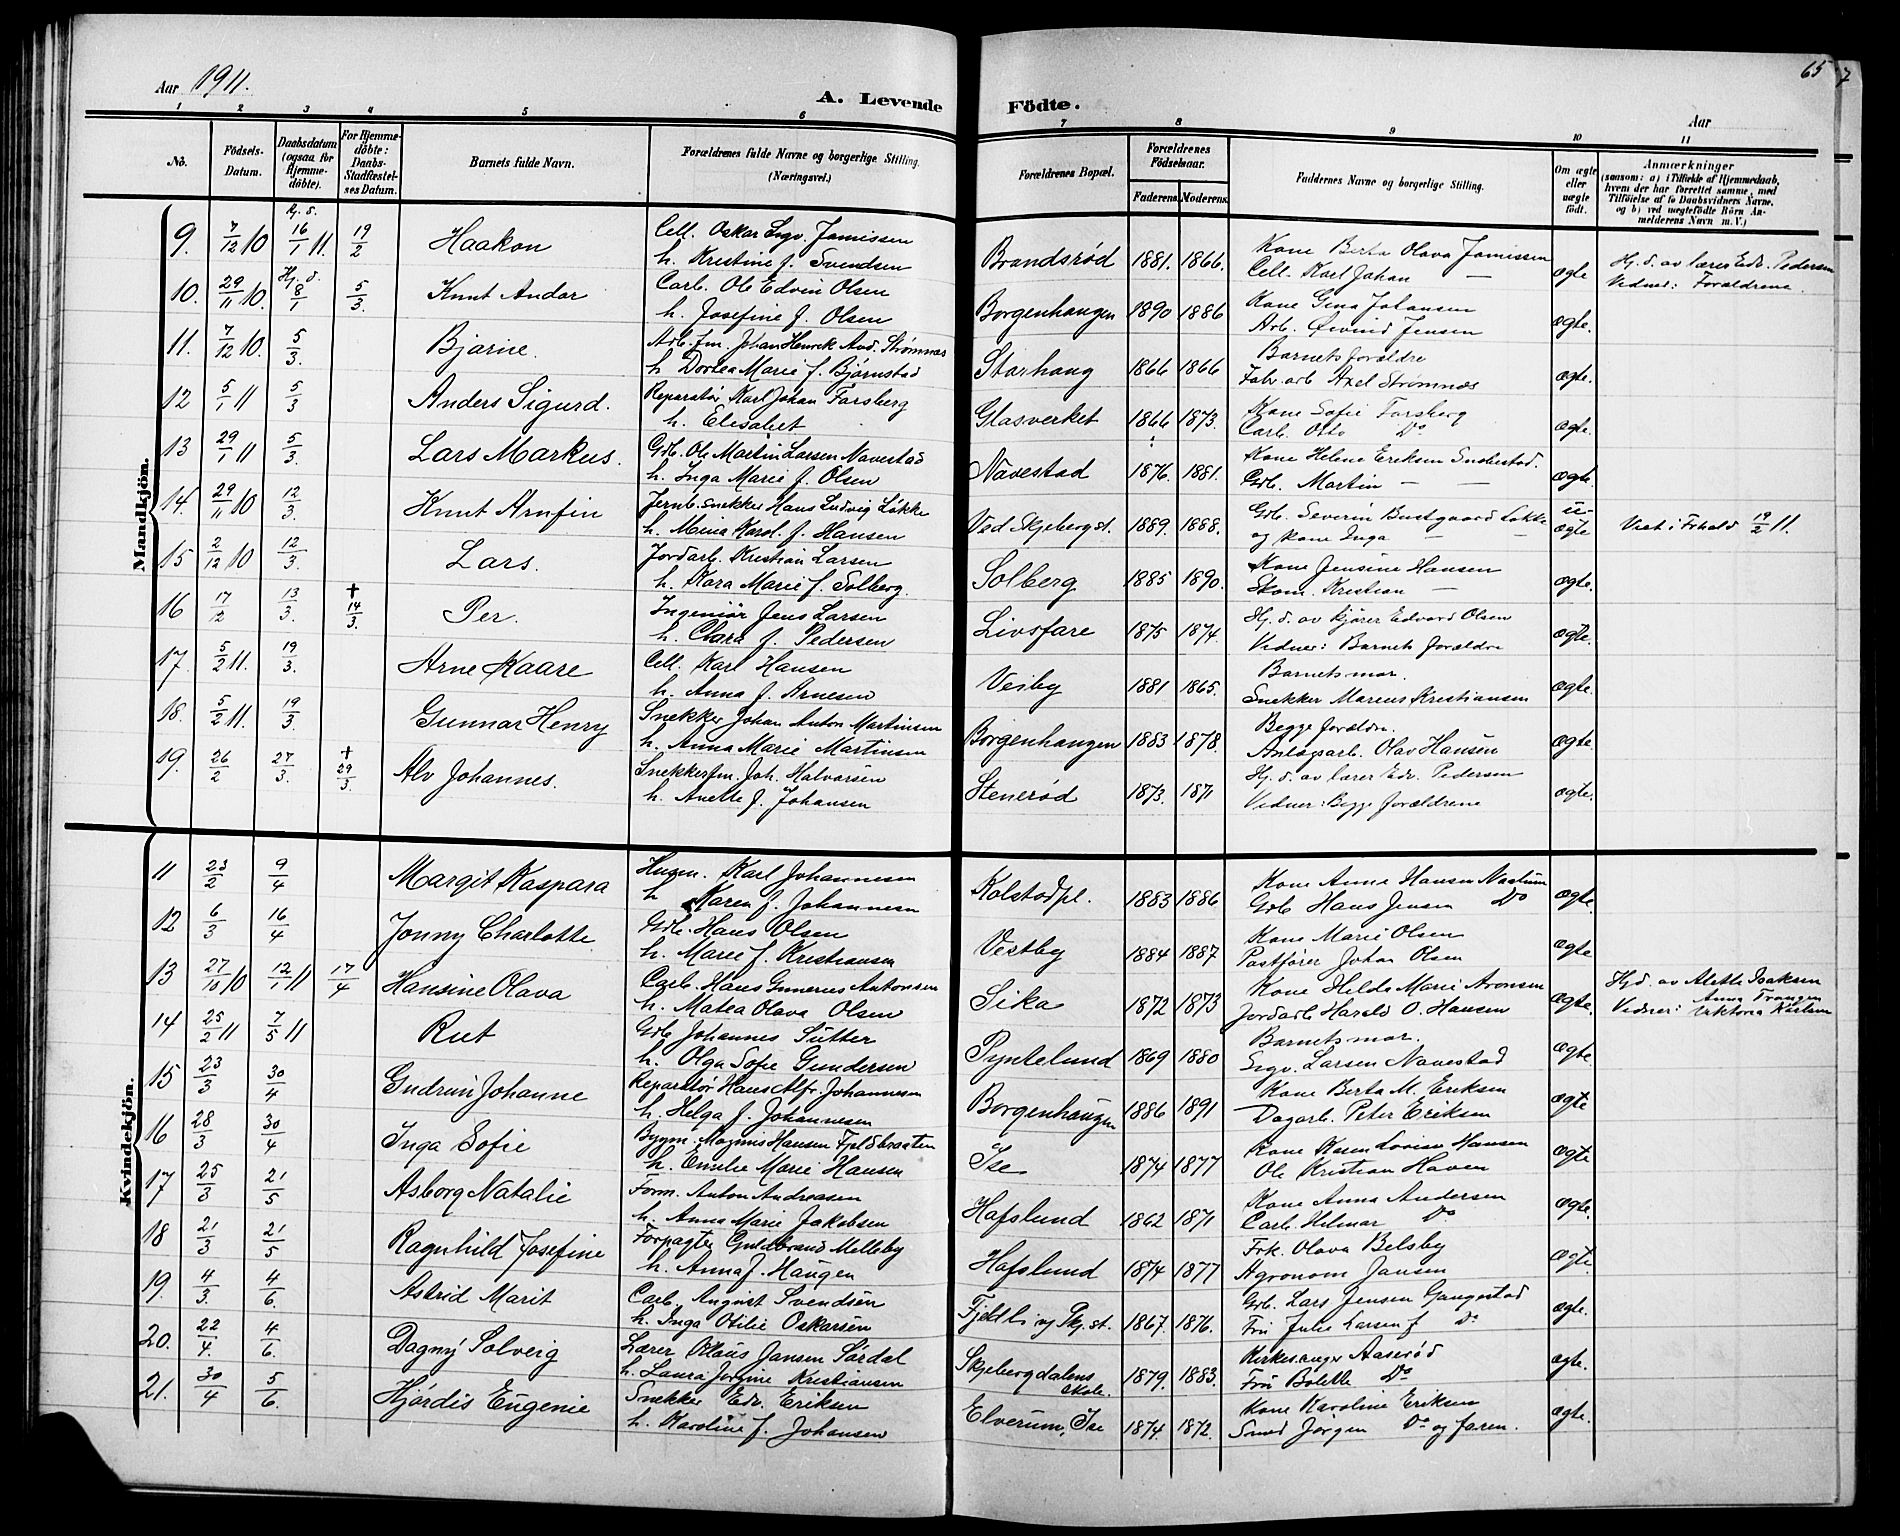 65
7
Aar 1911.
A. Levende Födte.
Aar
1 2 3 4 5 6 7 8 9 10 11
No.
Födsels-Datum.
Daabsdatum (ogsaa for Hjemme-döbte).
For Hjemme-döbte: Daabs-Stadfæstel-ses Datum.
Barnets fulde Navn.
Forældrenes fulde Navne og borgerlige Stilling. (Næringsvei.)
Forældrenes Bopæl.
Forældrenes Födselsaar.
Faderens. Moderens.
Faddernes Navne og borgerlige Stilling.
Om ægte eller uægte födt.
Anmærkninger
(saasom: a) i Tilfælde af Hjemmedaab, hvem der har forrettet samme, med Tilföielse af to Daabsvidners Navne, og b) ved uægtefödte Börn An-melderens Navn m. V.)
Mandkjön.
9. 7/12 10 Hj. d. 16/1 11. 19/2 Haakon Cell. Oskar Sigv. Jamissen Brandsrød 1881. 1866. Kone Berta Olava Jamissen ægte Hj. d. av lærer Edv. Pedersen
h. Kristine f. Svendsen Cell. Karl Johan — Vidner: Forældrene.
10. 29/11 10. Hj. d. 8/1 5/3 Knut Andor Carb. Ole Edvin Olsen Borgenhaugen 1890 1886 Kone Gina Johansen ægte.
h. Josefine f. Olsen Arb. Øivind Jensen
11. 7/12 10. 5/3 Bjarne. Arb. fm. Johan Henrik And. Strømnæs Storhaug 1866 1866 Barnets forældre ægte.
h. Dortea Marie f. Bjørnstad Fabr arb Axel Strømnæs
12 5/1 11 5/3 Anders Sigurd. Reparatør Karl Johan Forsberg Glasverket 1866 1873. Kone Sofie Forsberg ægte.
h. Elisabet Carb. Otto Do
13 29/1 11 5/3 Lars Markus. Grb. Ole Martin Larsen Navestad Navestad 1876. 1881. Kone Helene Eriksen ægte.
h. Inga Marie f. Olsen Grb. Martin — —
14. 29/11 10 12/3. Knut Arnfin Jernb. snekker Hans Ludvig Løkke Ved Skjeberg st. 1889. 1888. Grb. Severin Bustgaard Løkke u-ægte Viet i Frhald 19/2 11.
h. Mina Karol. f. Hansen og kone Inga — —
15 2/12 10 12/3. Lars. Jordarb. Kristian Larsen Solberg 1885 1890. Kone Jensine Hansen ægte.
h. Kara Marie f. Solberg. Stom. Kristian —
16 17/2 13/3. + 14/3. Per. Ingeniør Jens Larsen Livsfare 1875 1874. Hj. d. av kjører Edvard Olsen ægte.
h. Clara f. Pedersen Vidner: Barnets forældre
17. 5/2 11. 19/3. Arne Kaare Cell. Karl Hansen Veiby 1881 1865. Barnets mor. ægte.
h. Anna f. Arnesen Snekker Marius Kristiansen
18. 5/2 11. 19/3. Gunnar Henry Snekker Johan Anton Martinsen Borgenhaugen 1883 1878. Begge forældre. ægte.
h. Anna Marie Martinsen Anlægsarb. Olav Hansen
19. 26/2 27/3. + 29/3. Alv Johannes. Snekkerfm. Joh. Halvorsen Stenerød 1873. 1871 Hj. d. av lærer Edv. Pedersen ægte.
h. Anette f. Johansen Vidner: Begge forældrene
Kvindekjön.
11 23/2 9/4 Margit Kaspara Husm. Karl Johannesen Kolstadpl. 1883 1886 Kone Anne Hansen ægte.
h Maren f. Johannesen Grb Hans Jensen Do
12 6/3 16/4 Jonny Charlotte Grb. Hans Olsen Vestby 1884 1887 Kone Marie Olsen ægte
h. Marie f. Kristiansen Postfører Johan Olsen
13 27/10 10 12/1 11 17/4 Hansine Olava Carb. Hans Gunerius Antonsen Sika 1872 1873 Kone Hilda Marie Aronsen ægte. Hjd. av Alette Isaksen
h. Matea Olava Olsen Jordarb Harald O. Hansen Vidner: Anna Trangen Viktoria Karlsen
14 25/2 11 7/5 11 Rut Grb Johannes Sutter Pyntelund 1869 1880 Barnets mor. ægte
h. Olga Sofie Gundersen Sigv. Larsen Navestad
15 23/3 30/4 Gudrun Johanne Reparatør Hans Alfr. Johannesen Borgenhaugen 1886 1891 Kone Berta M. Eriksen ægte
h. Helga f. Johannesen Dagarb. Peter Eriksen
16 28/3 30/4 Inga Sofie Bygm. Magnus Hansen Fjeldbraaten Ise 1874 1877 Kone Karen Lovise Hansen ægte
h. Emilie Marie Hansen Ole Kristian Haven
17 25/3 21/5 Asborg Natalie Form. Anton Andreasen Hafslund 1862 1871 Kone Anna Andersen ægte.
h. Anna Marie Jakobsen Carb. Helmar Do
18 21/3 21/5 Ragnhild Josefine Forpagter Guldbrand Melleby Hafslund 1874 1877 Frk. Olava Belsby ægte.
h. Anna f. Haugen Agronom Jansen
19. 4/3. 4/6. Astrid Marit Carb. August Svendsen Fjeldli v Skj. st. 1867. 1876. Grb. Lars Jensen Gangestad ægte.
h. Inga Otilie Oskarsen Fru Julie Larsen f Do
20. 22/4. 4/6. Dagny Solveig Lærer Olaus Jansen Sørdal Skjebergdalens skole. 1879. 1883. Kirkesanger Aaserød ægte.
h. Laura Jørgine Kristiansen Fru Bolette Do
21. 30/4 5/6. Hjørdis Eugenie Snekker Edv. Eriksen Elverum, Ise 1874. 1872. Kone Karoline Eriksen ægte.
h. Karoline f. Johansen Smed Jørgen Do og faren.